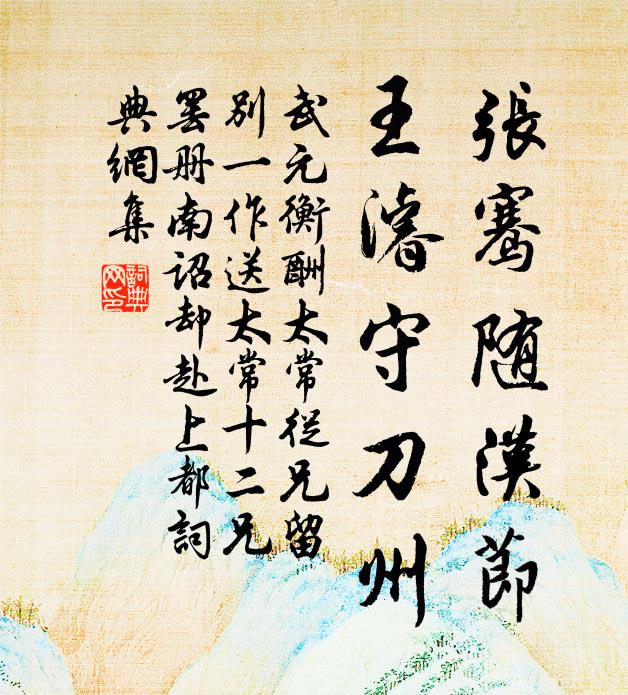 張騫随漢節
王濬守刀州
武元衡酬太常從兄留
別一作送太常十二兄
罢册南詔却赴上都詞
典網集
詞典
网印